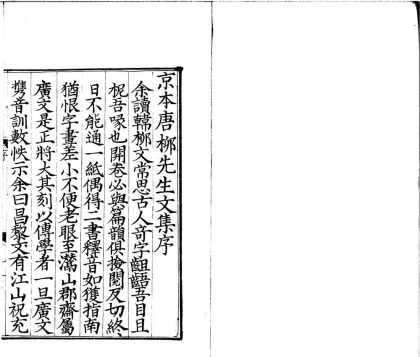 京本唐栁先生文集序
余讀韓栁文常思古人奇字齟齬吾目且
柅吾喙也開卷必與篇韻俱撿閱反切終
日不能通一紙偶得二書釋音如獲指南
猶恨字畫差小不便老眼至灊山郡齋屬
廣文是正將大其刻以傳學者一旦廣文
擕音訓數帙示余曰昌黎文有江山祝充